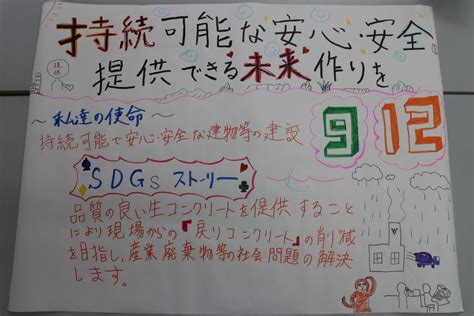 持続可能な安心・安全
提供できる未来作りを
提供
～私達の使命～
持続可能で安心・安全な建物等の建設
9 12
SDGs ストーリー
品質の良い生コンクリートを提供すること
により現場からの『戻りコンクリート』の削減
を目指し、産業廃棄物等の社会問題の解決
します。